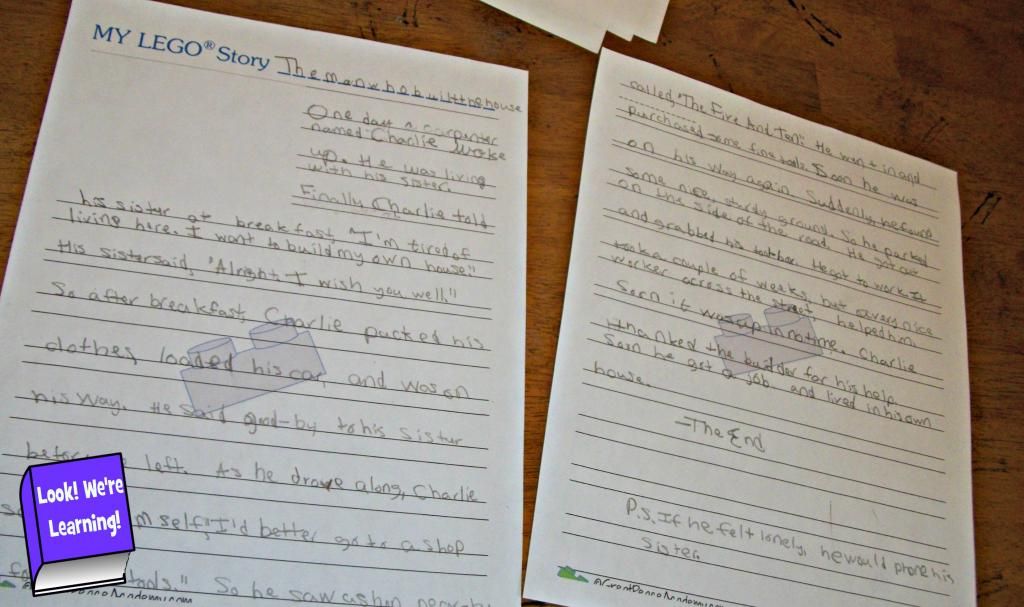 MY LEGO® Story The man who built the house
One day a carpenter
named Charlie woke
up. He was living
with his sister.
Finally Charlie told
his sister at breakfast, "I'm tired of
living here. I want to build my own house."
His sister said, "Alright, I wish you well."
So after breakfast, Charlie packed his
clothes, loaded his car, and was on
his way. He said good-by to his sister
before left. As he drove along, Charlie
mself "I'd better go to a shop
tools." So he saw a shop
called, "The Five And Ten". He went in and
purchased some fine tools. Soon he was
on his way again. Suddenly he found
some nice, sturdy ground. So he parked
on the side of the road. He got out
and grabbed his toolbox. He got to work. It
took a couple of weeks, but a very nice
worker across the street, helped him.
Soon it was up in no time. Charlie
thanked the builder for his help.
Soon he got a job. and lived in his own
house.
-The End
P.S. If he felt lonely, he would phone his
sister.
Look! We're
Learning!